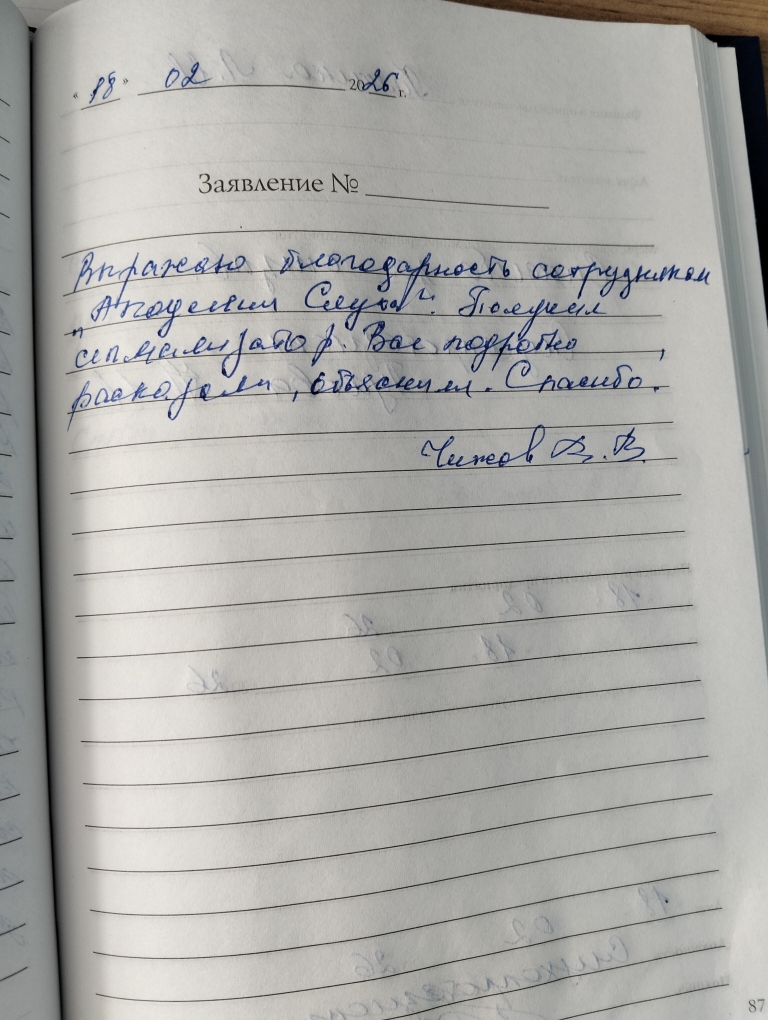 « 18 » 02 2026 г.
Заявление №
Выражаю благодарность сотрудникам
"Академии Слуха". Получил
сигнализатор. Все подробно
расказали, объяснили. Спасибо.
Чижов В.В.
87